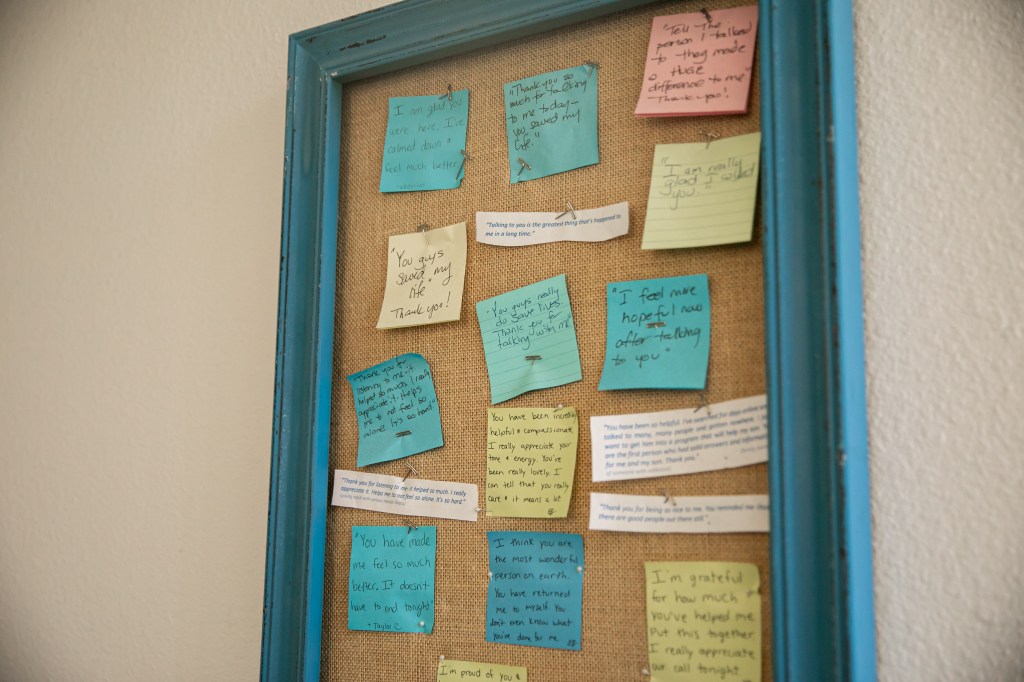 "Tell The
person I talked
to they made
a HUGE
difference to me"
Thank you!
I am glad you
were here. I've
calmed down &
feel much better.
"Thank you so
much for talking
to me today-
you saved my
life."
"I am really
glad I called
you."
"Talking to you is the greatest thing that's happened to
me in a long time."
"You guys
saved my
life"
Thank you!
"You guys really
do save lives.
Thank you for
talking with me"
"I feel more
hopeful now
after talking
to you"
"Thank you for
listening to me it
helped so much. I really
appreciate it. Helps
me to not feel so
alone. It's so hard."
You have been incredibly
helpful & compassionate
I really appreciate your
tone & energy. You've
been really lovely. I
can tell that you really
care & it means a lot
"You have been so helpful. I've searched for days online and
talked to many, many people and gotten nowhere. I
want to get him into a program that will help my son.
are the first person who had solid answers and information
for me and my son. Thank you."
"Thank you for listening to me it helped so much. I really
appreciate it. Helps me to not feel so alone. It's so hard."
"Thank you for being so nice to me. You reminded me
there are good people out there still."
"You have made
me feel so much
better. It doesn't
have to end tonight"
- Taylor C.
I think you are
the most wonderful
person on earth.
You have returned
me to myself. You
don't even know what
you've done for me
I'm grateful
for how much
you've helped me
Put this together
I really appreciate
our call tonight
I'm proud of you &